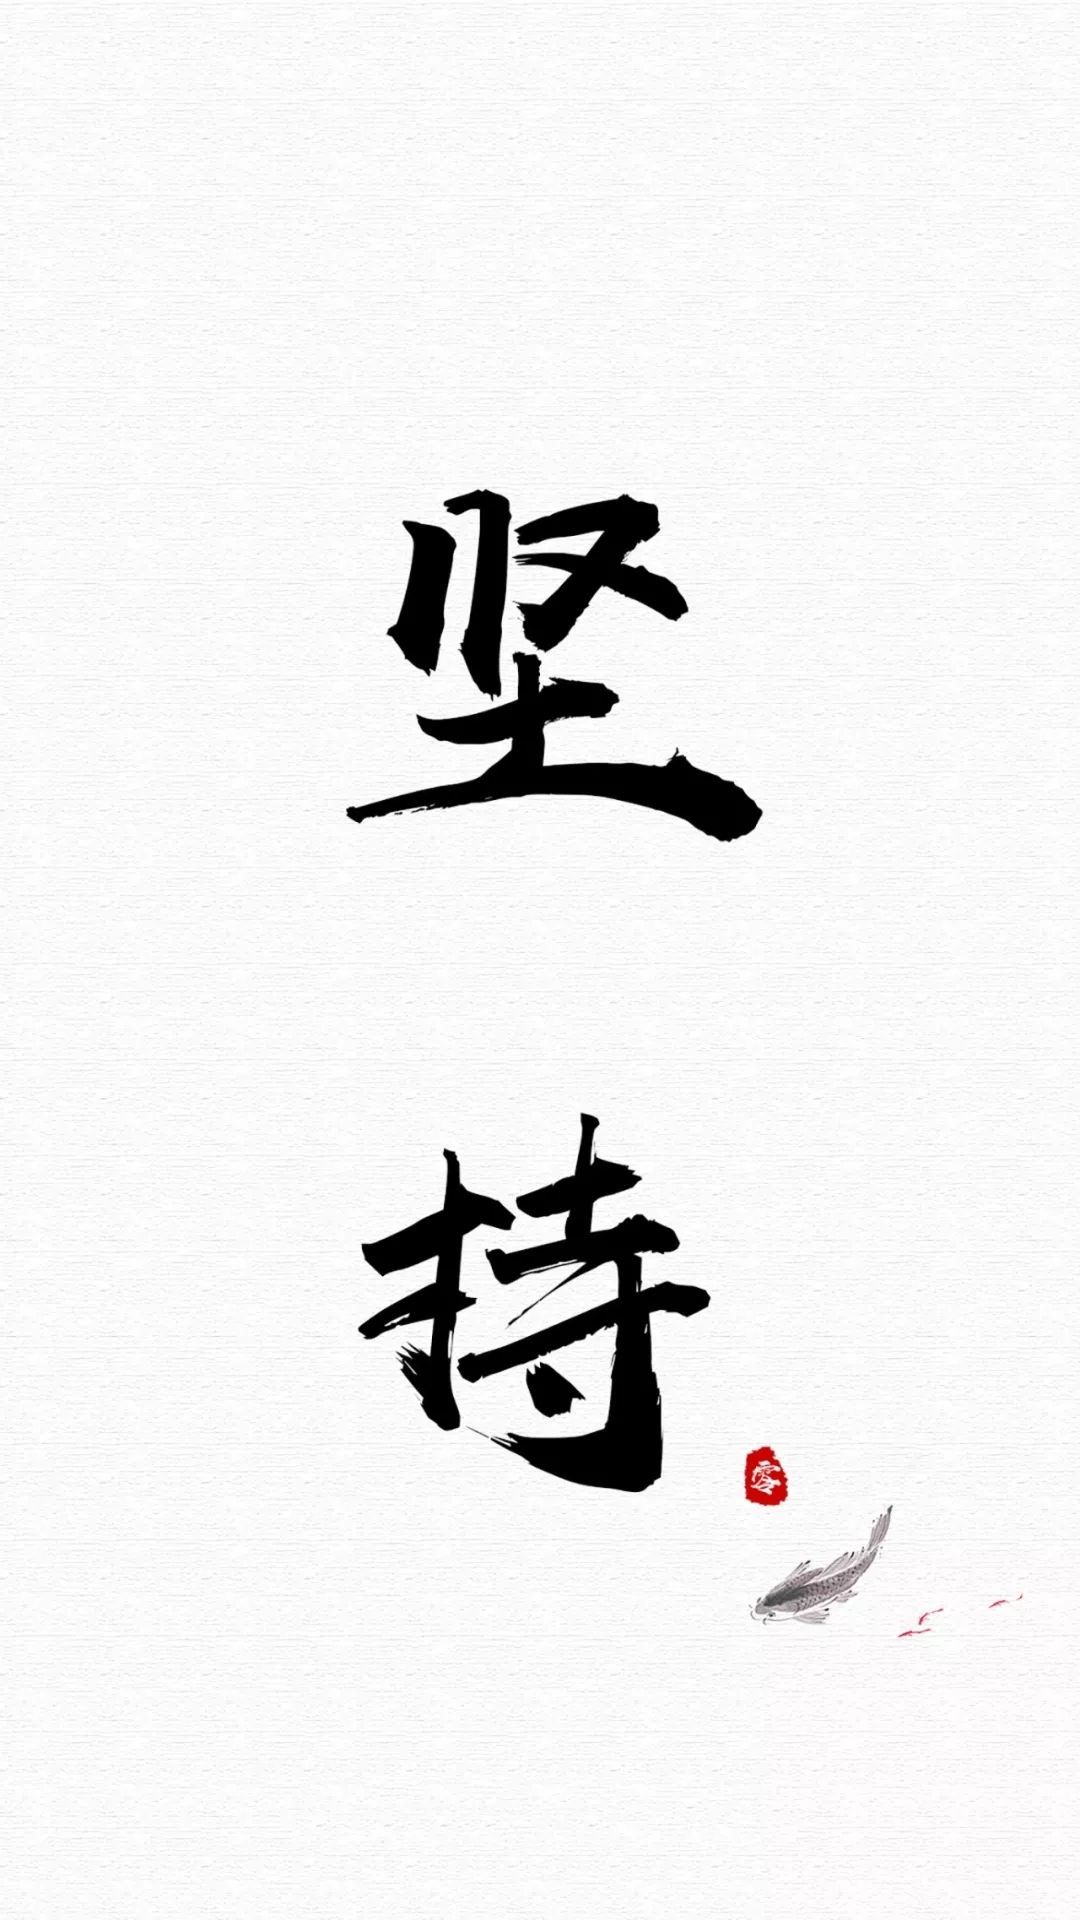 坚
持
零